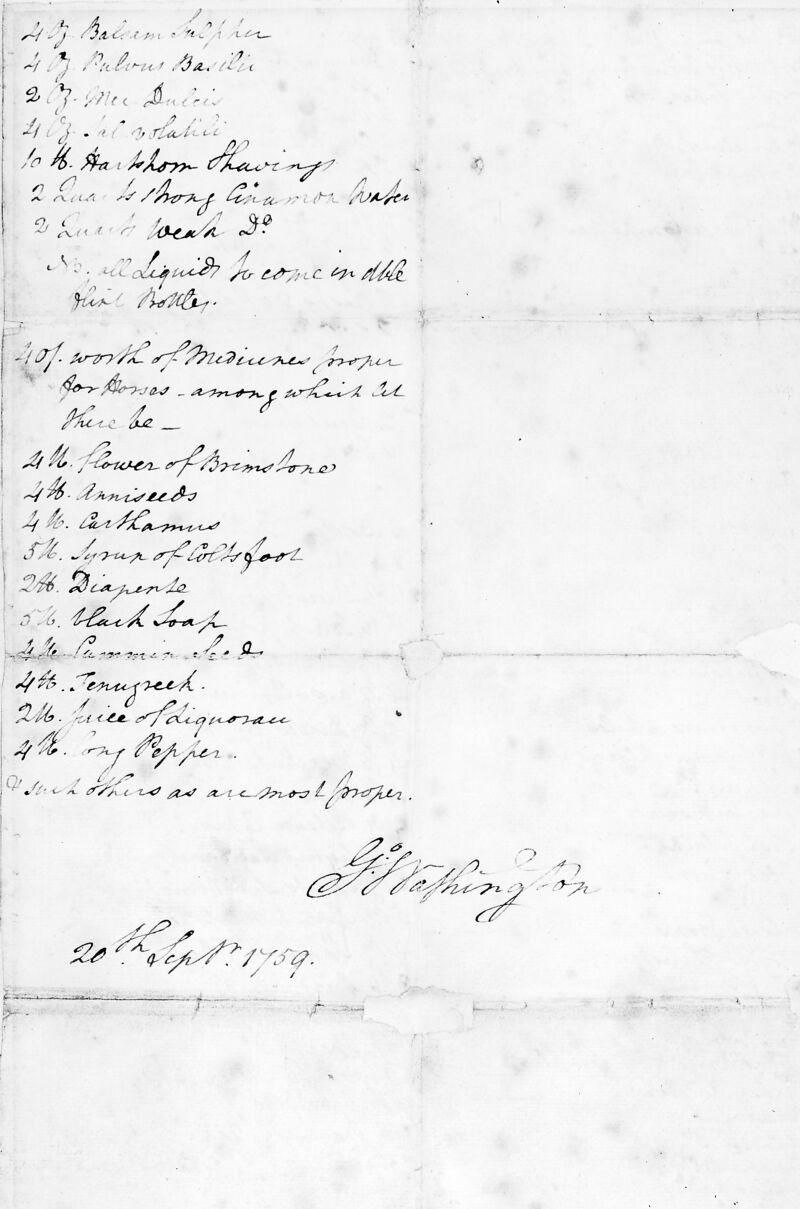 4 Oz. Balsam Sulpher
4 Oz. Pulvus Basilic
2 Oz. Mer Dulcis
4 Oz. Sal volatili
10 lb. Hartshorn Shavings
2 Quarts strong Cinamon Water
2 Quarts weak Do
NB. all Liquids to come in dble
flint Bottles.
40/. worth of Medicines proper
for Horses - among which let
there be —
4 lb. flower of Brimstone
4 lb. Anniseeds
4 lb. Carthamus
5 lb. Syrup of Colts foot
2 lb. Diapente
5 lb. black Soap
4 lb. Cummin Seeds
4 lb. Fenugreek.
2 lb. Juice of Liquorau
4 lb. long Pepper.
& such others as are most proper.
Go: Washington
20th. Septr. 1759.